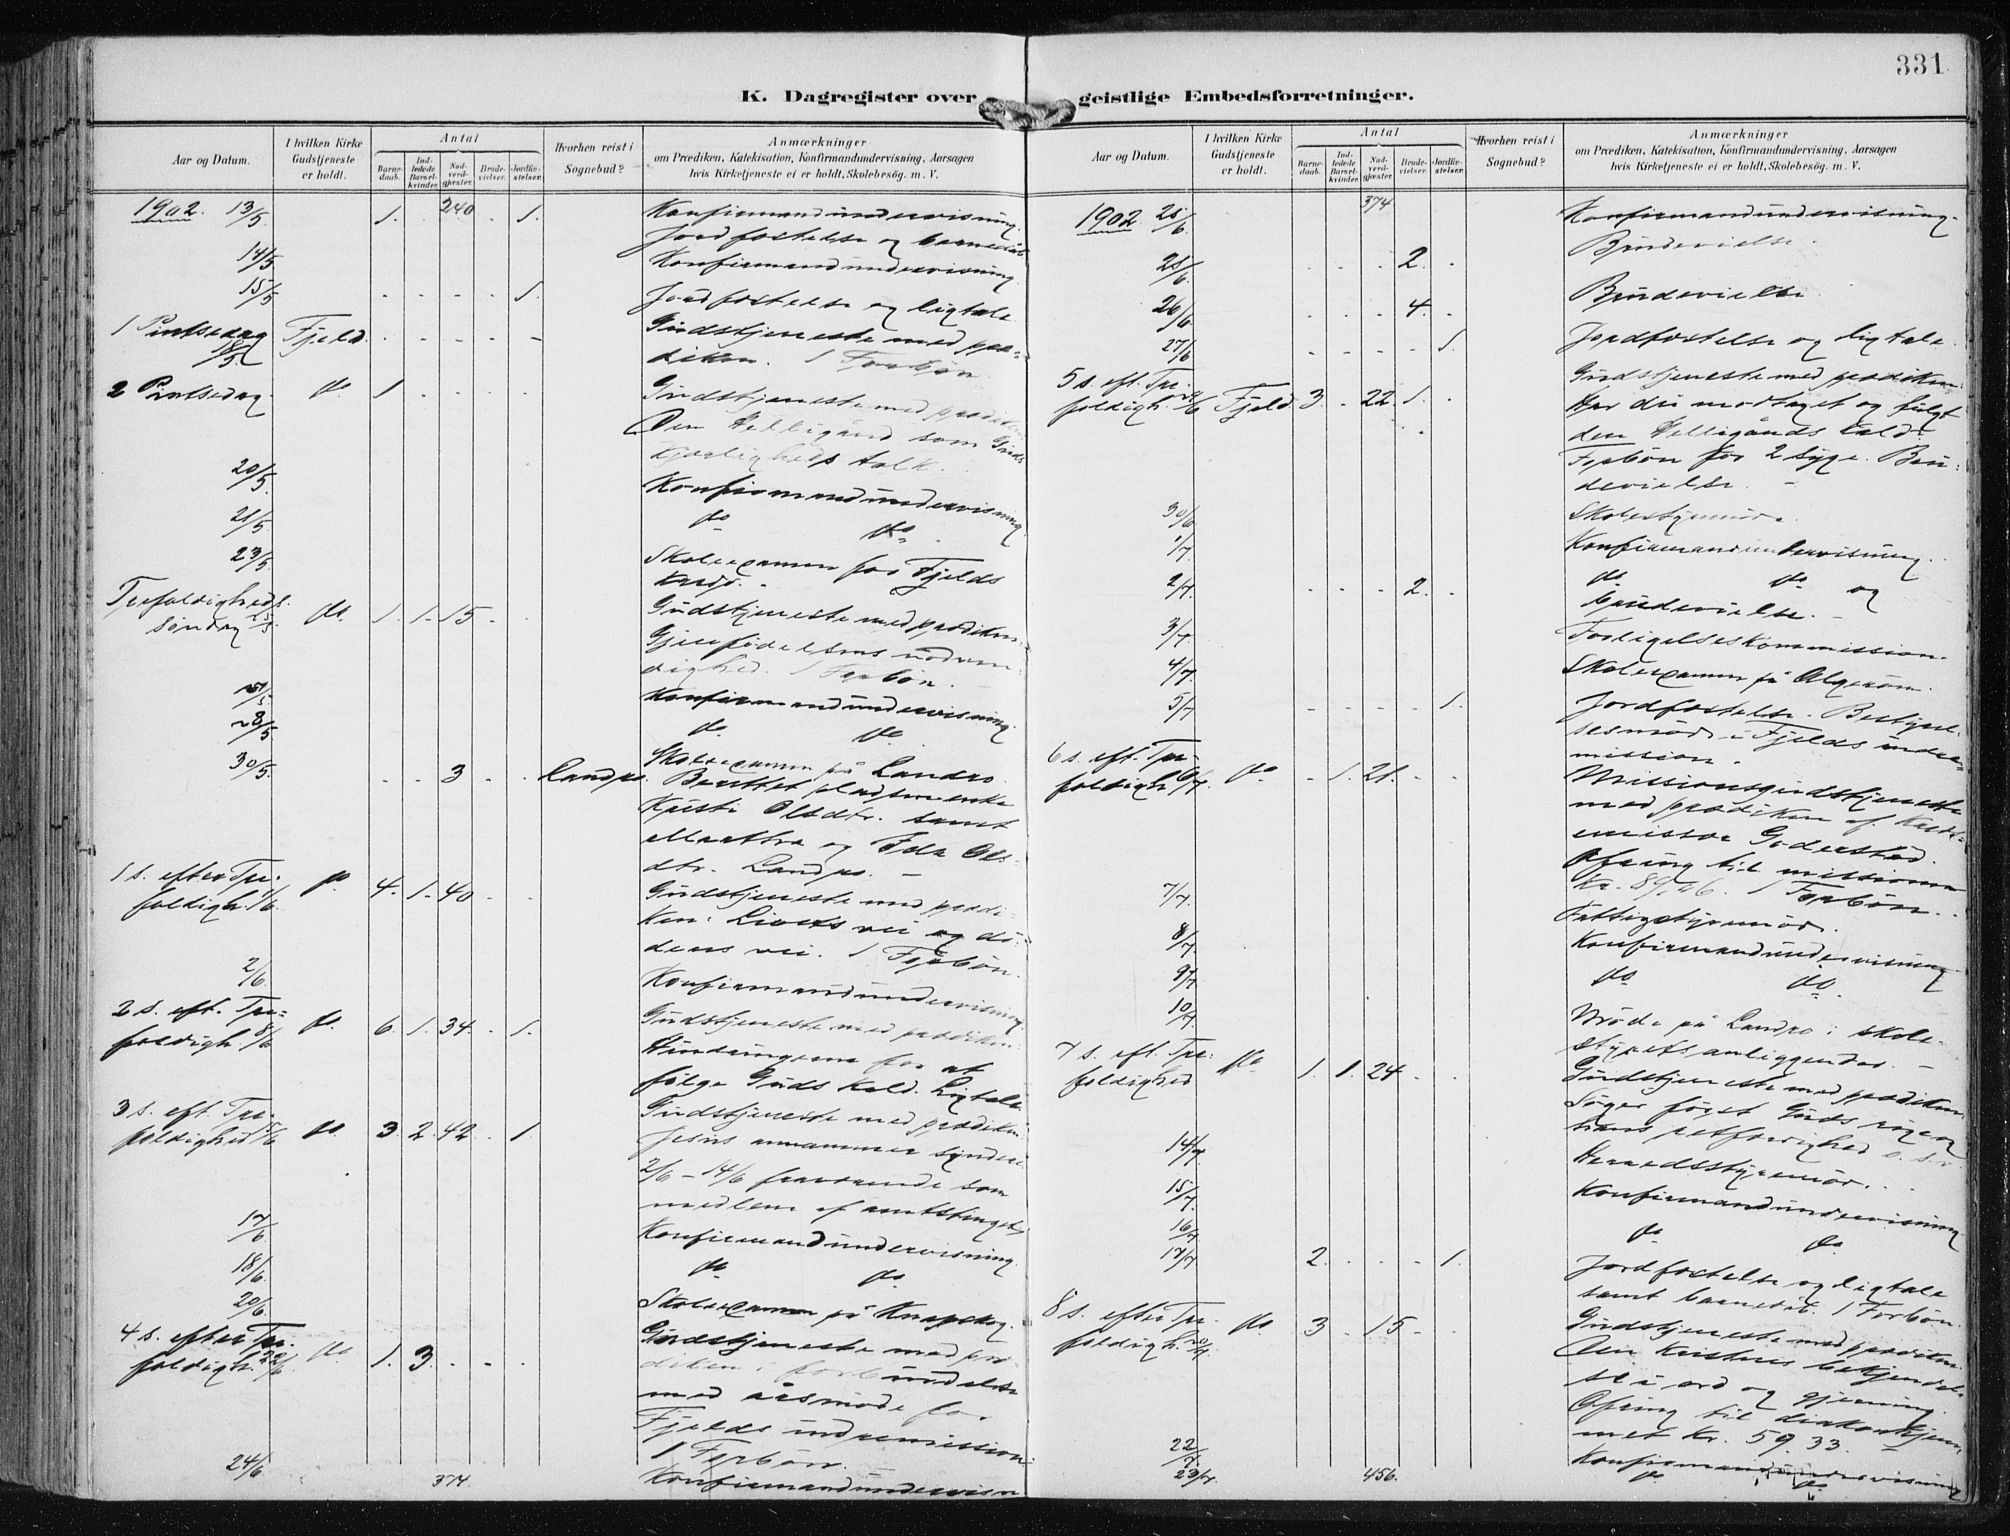 331
K. Dagregister over geistlige Embedsforretninger.
Aar og Datum.
I hvilken Kirke Gudstjeneste er holdt.
Antal
Barnedaab.
Indledede Barselkvinder.
Nadverdgjester.
Brudevielser.
Jordfæstelser.
Hvorhen reist i Sognebud?
Anmærkninger
om Prædiken, Katekisation, Konfirmandundervisning, Aarsagen
hvis Kirketjeneste ei er holdt, Skolebesøg. m. V.
1902. 13/5 1. 240 . 1. Konfirmandundervisning.
Jordfæstelse og barnedåb
14/5 Konfirmandundervisning
15/5 1. Jordfæstelse og ligtale
1 Pintsedag 18/5 Fjeld. Gudstjeneste med præ-
diken. 1 Forbøn
2 Pintsedag do. 1 Gudstjeneste med prædiken
Den Helligånd som Guds
kjærligheds tolk.
20/5 Konfirmandundervisning
21/5 do do.
23/5 Skoleexamen for Fjelds
kreds.
Trefoldigheds
søndag 25/5 do. 1. 1. 15. Gudstjeneste med prædiken:
Gjenfødelsens nødven-
dighed. 1 Forbøn.
Konfirmandundervisning.
28/5 do do.
30/5 3 Landro. Skoleexamen på Landro.
Berettet
Kristi Olsdtr. samt
Martha og Ols-
dtr. Landro.
1 s. efter Tre-
foldigh. 1/6 do. 4. 1. 40 Gudstjeneste med prædi-
ken: Livets vei og dø-
dens vei. 1 Forbøn.
2/6 Konfirmandundervisning.
2 s. eft. Tre-
foldigh. 8/6 do. 6. 1. 34. . 1. Gudstjeneste med prædiken:
Hindringerne for at
følge Guds kald. Ligtale
3 s. eft. Tre-
foldighed 15/6 do. 3. 2. 42 . 1. Gudstjeneste med prædiken:
Jesus annammer syndere.
2/6 – 14/6 fraværende som
medlem af amtstinget.
17/6 Konfirmandundervisning.
18/6 do do.
20/6 Skoleexamen på Knapskog.
4 s. efter Tre-
foldigh. 22/6 do 1. 3. Gudstjeneste med præ-
diken i forbindelse
med årsmøde for
Fjelds indremission
1 Forbøn.
24/6 374 Konfirmandundervisn
Aar og Datum.
I hvilken Kirke Gudstjeneste er holdt.
Antal
Barnedaab.
Indledede Barselkvinder.
Nadverdgjester.
Brudevielser.
Jordfæstelser.
Hvorhen reist i Sognebud?
Anmærkninger
om Prædiken, Katekisation, Konfirmandundervisning, Aarsagen
hvis Kirketjeneste ei er holdt, Skolebesøg. m. V.
1902. 25/6 374 Konfirmandundervisning.
Brudevielse.
25/6 2. Brudevielse
26/6 4.
27/6 1. Jordfæstelse og ligtale.
5 s. eft. Tre-
foldigh. 29/6 Fjeld 3. 22. 1. Gudstjeneste med prædiken:
Har du modtaget og fulgt
den Helligånds kald?
Forbøn for 2 syge. Bru-
devielse.
30/6 Skolestyremøde.
1/7 Konfirmandundervisning.
2/7 2. do do og
brudevielse.
3/7 Forligelseskommission.
4/7 Skoleexamen på Algerøen.
5/7 1. Jordfæstelse. Bestyrel-
sesmøde i Fjelds indre-
mission.
6 s. eft. Tre-
foldigh. 6/7 do 1. 21. Missionsgudstjeneste
med prædiken af kreds-
emissær Goderstad.
Ofring til missionen
Kr. 89,46. 1 Forbøn.
7/7 Fattigstyremøde.
8/7 Konfirmandundervisning
9/7 do do.
10/7 Møde på Landro i skole-
styrets anliggender.
7 s. eft. Tre-
foldighed do 1. 1. 24. Gudstjeneste med prædiken
Søger først Guds rige og
hans retfærdighed o. s. v.
14/7 Herredsstyremøde.
15/7 Konfirmandundervisning
16/7 do do.
17/7 2. 1. Jordfæstelse og ligtale
samt barnedåb. 1 Forbøn.
8 s. efter Tre-
foldigh. 20/7 do 3 . 15 Gudstjeneste med prædiken:
Den kristnes bekjendel-
se i ord og gjerning.
Ofring til diakonhjem-
met kr. 59.33.
22/7 Konfirmandundervisning
23/7 456. do do